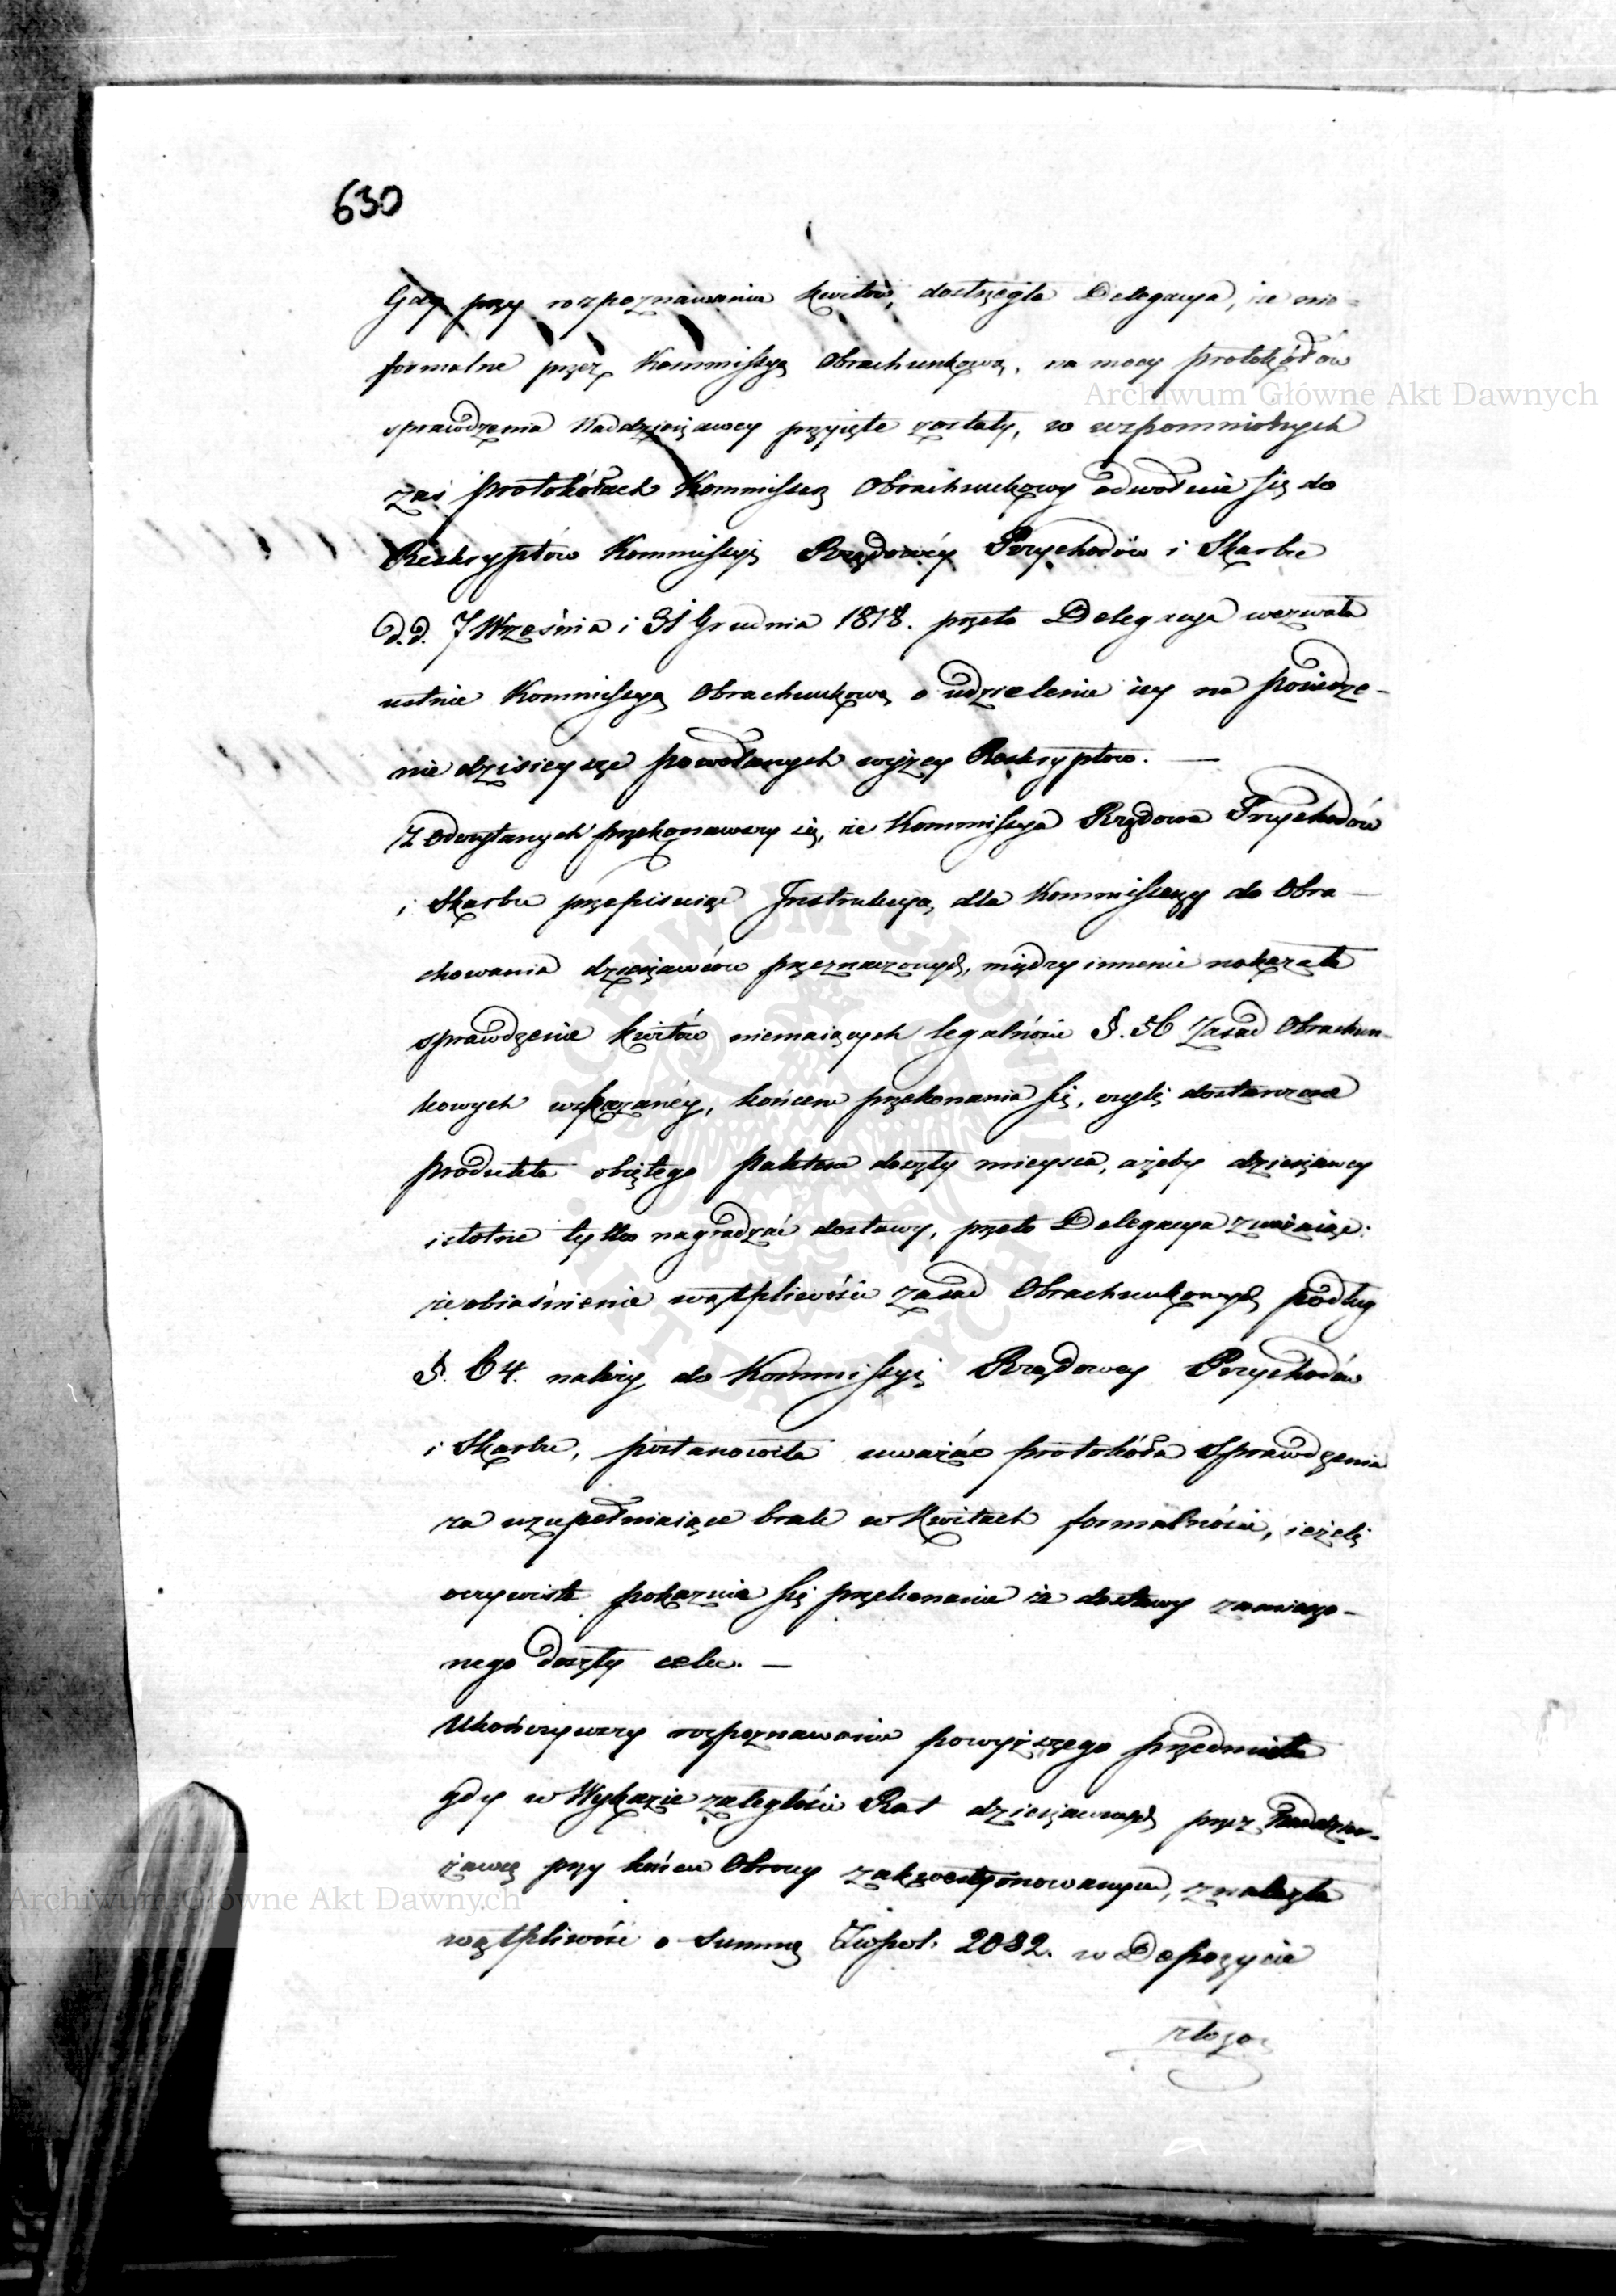 630
Gdy przy rozpoznawaniu kwitów, dostrzegła Delegacya, że nie-
formalne przez Kommissyą Obrachunkową, na mocy protokółów
Archiwum Główne Akt Dawnych
sprawdzenia Naddzierżawcy przyięte zostały, w wspomnionych
zaś protokółach Kommissarz Obrachunkowy odwołuie się do
Reskryptów Kommissyi Rządowéy Przychodów i Skarbu
d.d. 7 Września i 31 Grudnia 1818. przeto Delegacya wezwała
ustnie Kommissyą Obrachunkową o udzielenie iey na posiedze-
nie dzisieysze powołanych wyżey Reskryptów. —
Z odczytanych przekonawszy się, że Kommissya Rządowa Przychodów
i Skarbu przepisuiąc Instrukcyą, dla Kommissarzy do Obra-
chowania dzierżawców przeznaczonych, między innemi nakazała
sprawdzenie kwitów niemaiących legalności §. 56 Zasad Obrachun-
kowych wskazanéy, końcem przekonania się, czyli dostarczone
produkta obiętego paktem doszły mieysca, ażeby dzierżawcy
istotne tylko nagradzać dostawy, przeto Delegacya zważaiąc:
że obiaśnienie wątpliwości zasad Obrachunkowych podług
§. 64. należy do Kommissyi Rządowey Przychodów
i Skarbu, postanowiła uważać protokóła sprawdzenia
za uzupełniaiące brak w kwitach formalności, ieżeli
oczywiste pokaznie się przekonanie że dostawy zamierzo-
nego doszły celu. —
Ukończywszy rozpoznawanie powyższego przedmiotu
gdy w Wykazie zaległości Rat dzierżawnych przez Naddzier-
żawcę przy końcu Obrony zakwestyonowanym, znalazła
Archiwum Główne Akt Dawnych
wątpliwość o Summę Złwpol. 2032. w Depozycie
złożo
ARCHIWUM GŁÓWNE AKT DAWNYCH